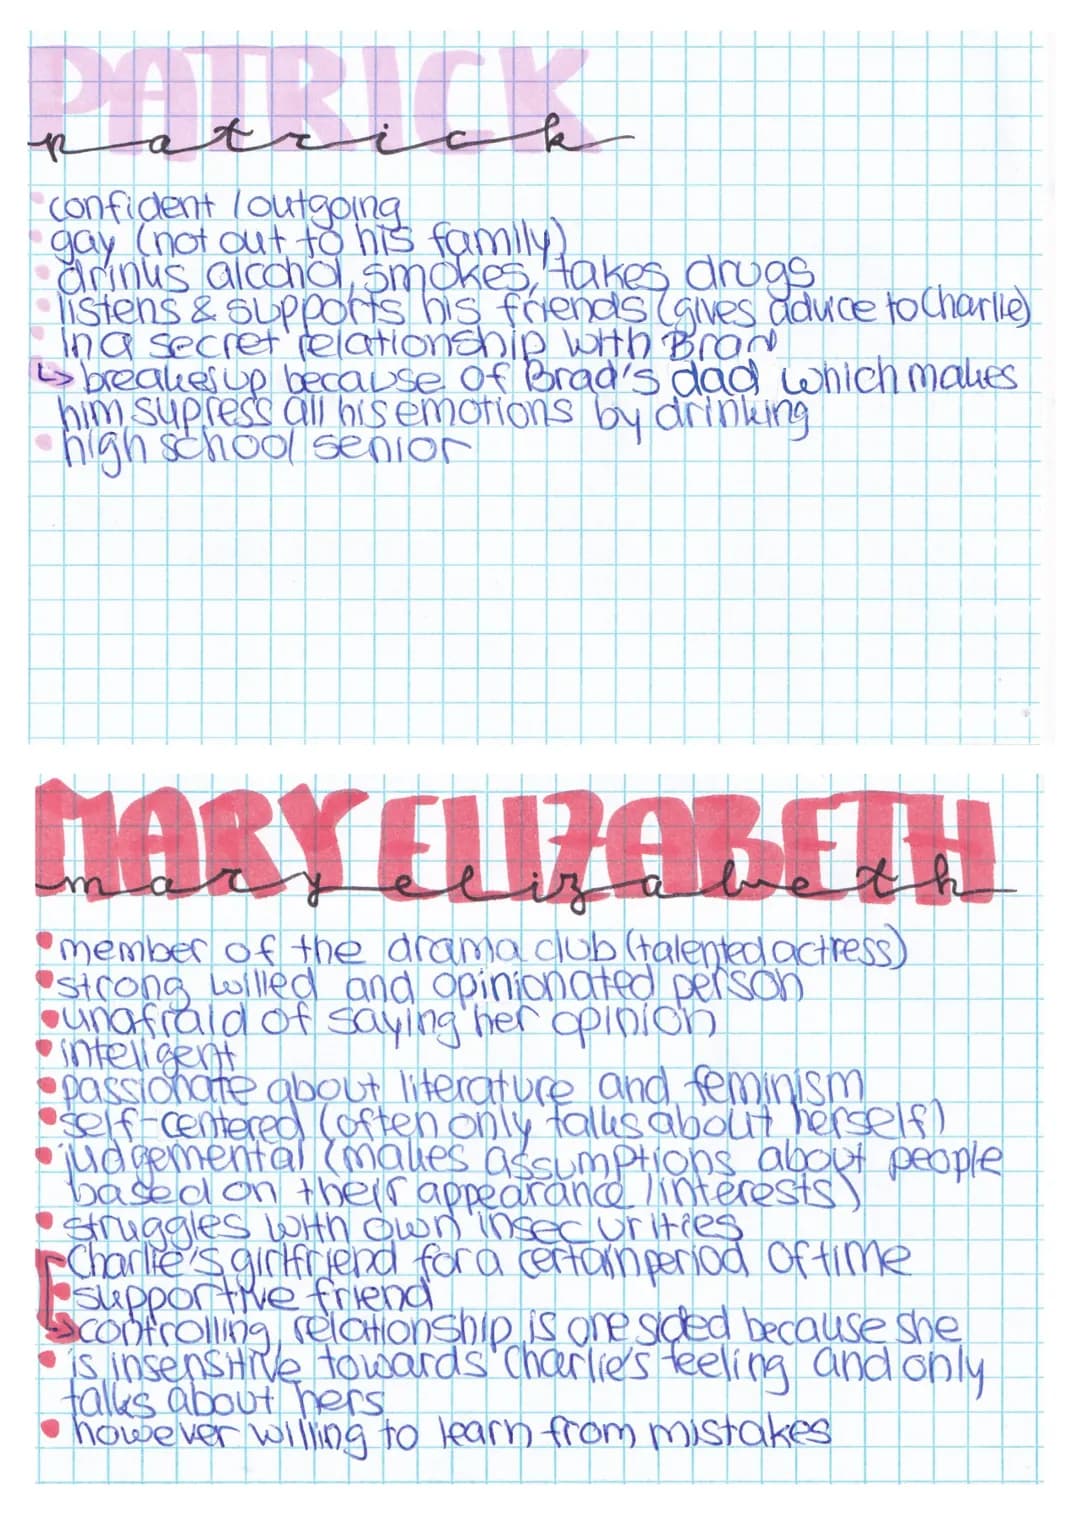 PATRICK
patrick
• confident / outgoing
• gay (not out to his family)
• drinks alcohol, smokes, takes drugs
• listens & supports his friends (gives advice to Charlie)
• in a secret relationship with Brad
↳ breakes up because of Brad's dad which makes
him supress all his emotions by drinking
• high school senior
MARY ELIZABETH
mary elizabeth
• member of the drama club (talented actress)
• strong willed and opinionated person
• unafraid of saying her opinion
• inteligent
• passionate about literature and feminism
• self-centered (often only talks about herself)
• judgemental (makes assumptions about people
based on their appearance / interests)
• struggles with own insecurities
Charlie's girlfriend for a certain period of time
• supportive friend
→ controlling, relationship is one sided because she
• is insensitive towards Charlie's feeling and only
talks about hers
• however willing to learn from mistakes